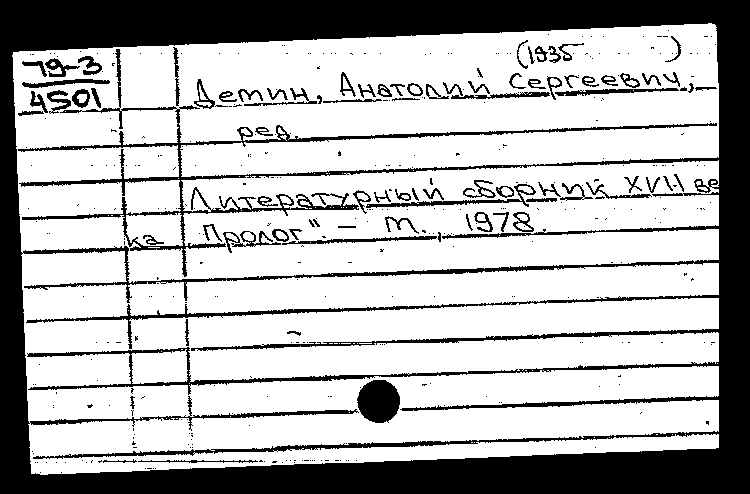 79-3
4501
(1935 )
Демин, Анатолий Сергеевич,
ред.
Литературный сборник XVII ве
ка "Пролог". – М., 1978.